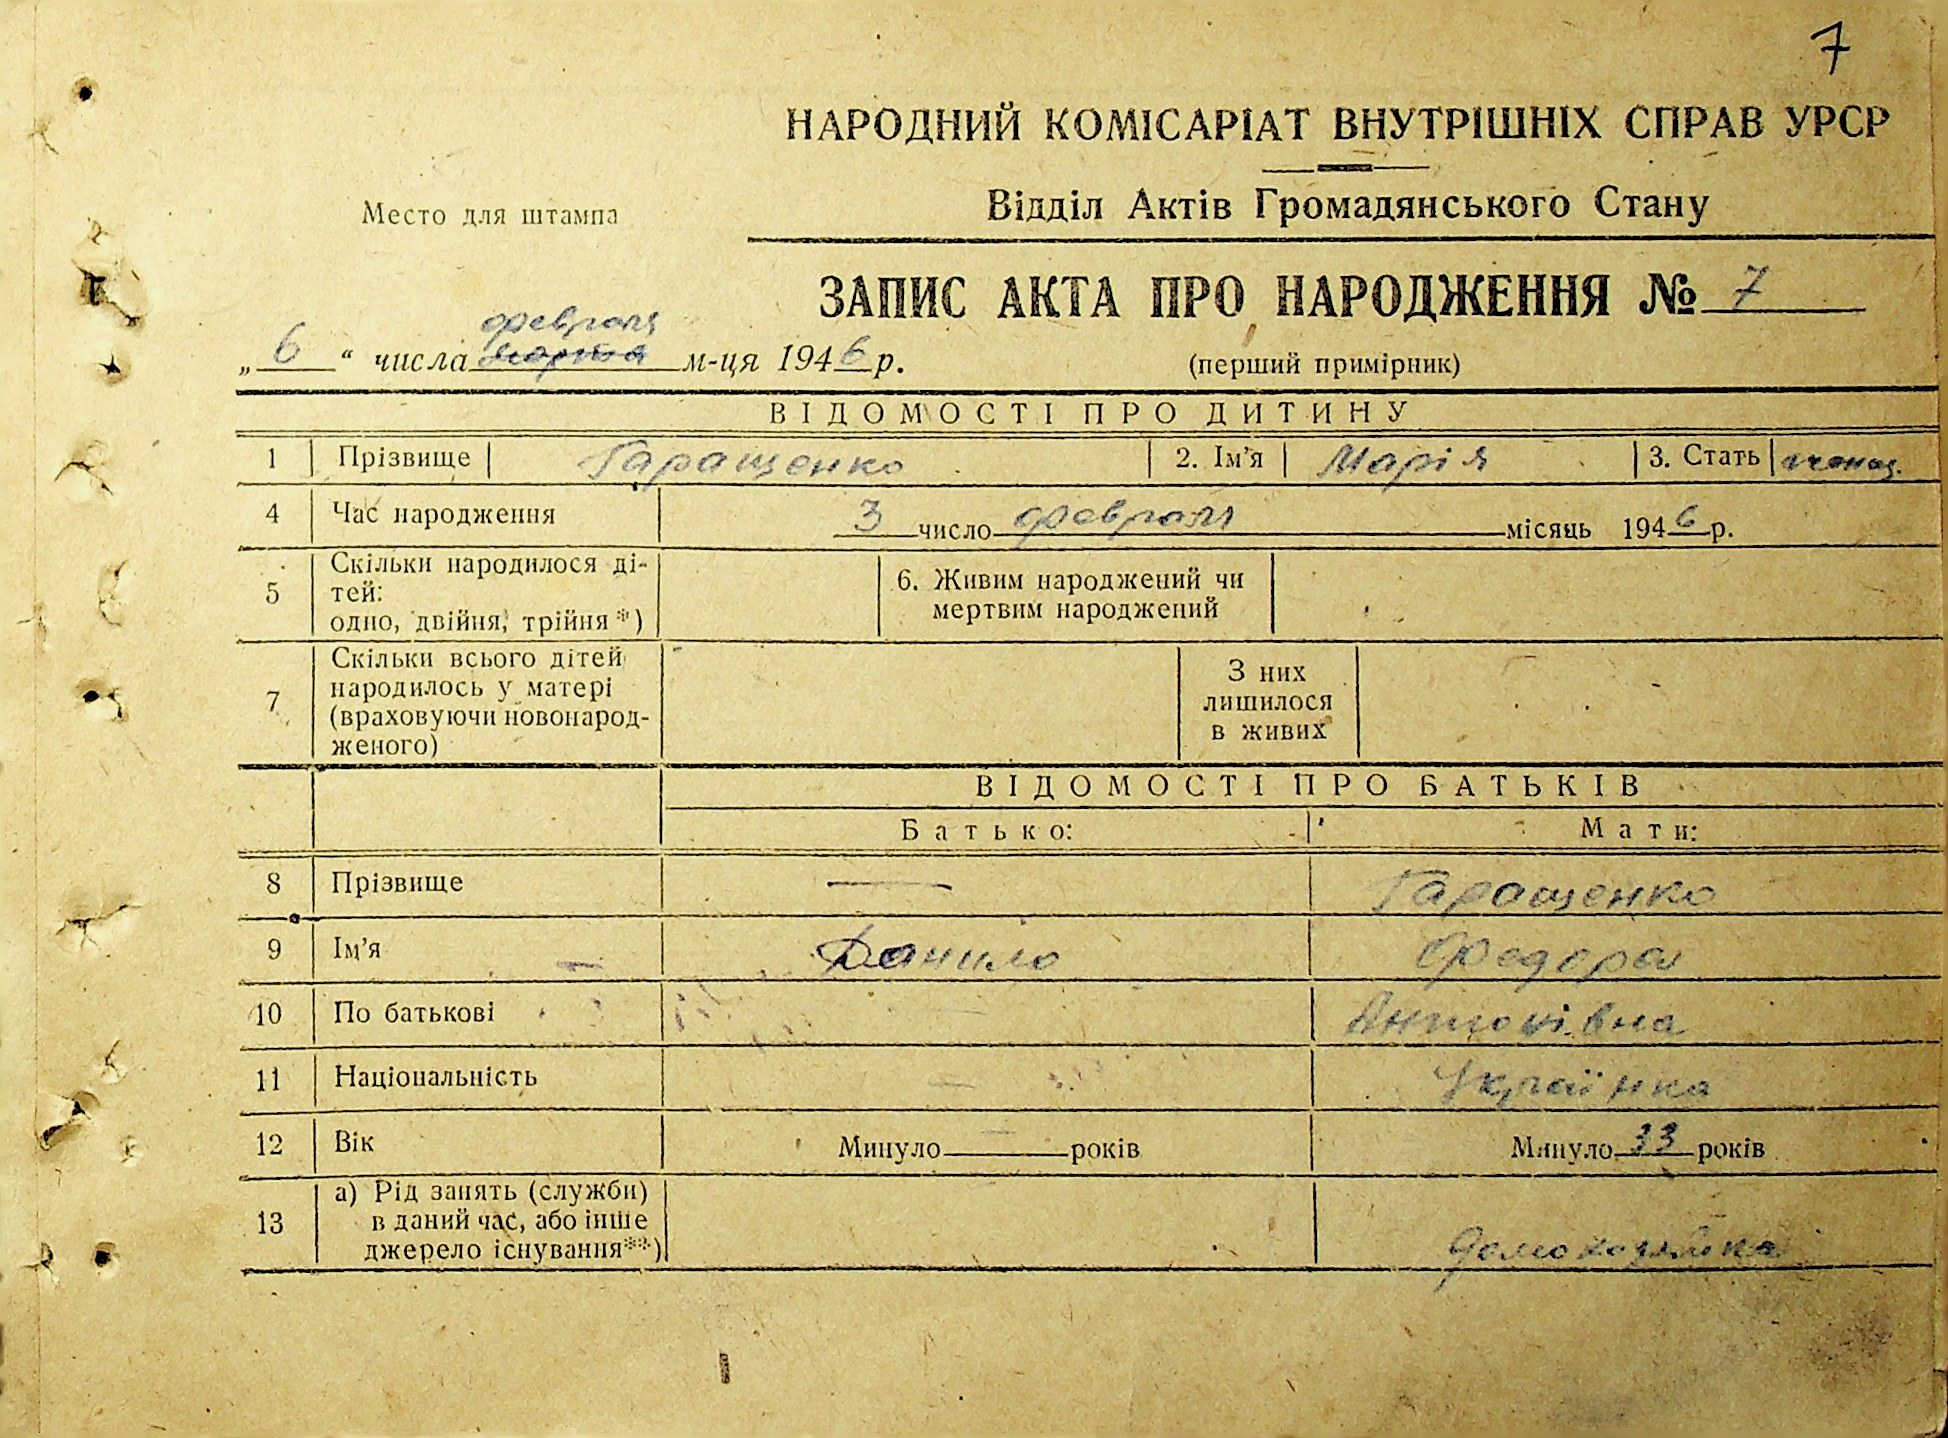 7
НАРОДНИЙ КОМІСАРІАТ ВНУТРІШНІХ СПРАВ УРСР
Место для штампа
Відділ Актів Громадянського Стану
ЗАПИС АКТА ПРО НАРОДЖЕННЯ № 7
февраля
„ 6 “ числа марта м-ця 1946 р.
(перший примірник)
ВІДОМОСТІ ПРО ДИТИНУ
1 Прізвище Гаращенко 2. Ім’я Марія 3. Стать женщ.
4 Час народження 3 число февраля місяць 1946 р.
5 Скільки народилося ді-
тей:
одно, двійня, трійня*)
6. Живим народжений чи
мертвим народжений
7 Скільки всього дітей
народилось у матері
(враховуючи новонарод-
женого)
З них
лишилося
в живих
ВІДОМОСТІ ПРО БАТЬКІВ
Батько: Мати:
8 Прізвище — Гаращенко
9 Ім’я Данило Федора
10 По батькові Антонівна
11 Національність Українка
12 Вік Минуло років Минуло 33 років
13 а) Рід занять (служби)
в даний час, або інше
джерело існування**)
домохозяйка